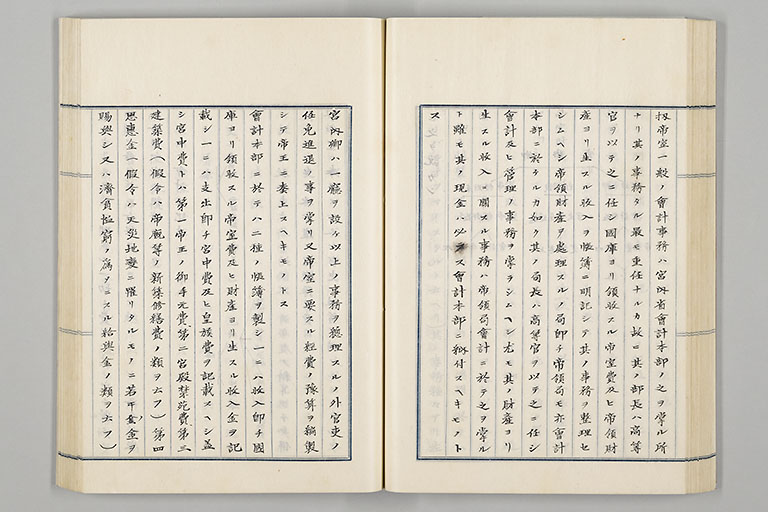 扨帝室一般ノ會計事務ハ宮内省會計本部ノ之ヲ掌ル所
ナリ其ノ事務タル最モ重任ナルカ故ニ其ノ部長ハ高等
官ヲ以テ之ニ任シ國庫ヨリ領收スル帝室費及ヒ帝領財
産ヨリ生スル收入ヲ帳簿ニ明記シテ其ノ事務ヲ整理セ
シムヘシ帝領財産ヲ處理スルノ局即チ帝領局モ亦會計
本部ニ於ケルカ如ク其ノ局長ハ高等官ヲ以テ之ニ任シ
會計及ヒ管理ノ事務ヲ掌ラシムヘシ尤モ其ノ財産ヨリ
生スル收入ニ關スル事務ハ帝領局會計ニ於テ之ヲ掌ル
ト雖モ其ノ現金ハ必ラス會計本部ニ納付スヘキモノト
ス
宮内卿ハ一廳ヲ設ケ以上ノ事務ヲ總理スルノ外官吏ノ
任免進退ノ事ヲ掌リ又帝室ニ要スル經費ノ豫算ヲ編製
シテ帝王ニ奏上スヘキモノトス
會計本部ニ於テハ二種ノ帳簿ヲ製シ一ニハ收入即チ國
庫ヨリ領收スル帝室費及ヒ財産ヨリ生スル收入金ヲ記
載シ一ニハ支出即チ宮中費及ヒ皇族費ヲ記載スヘシ蓋
シ宮中費トハ第一帝王ノ御手元費第二宮殿禁苑費第三
建築費（假令ハ帝廐等ノ新築修繕費ノ類ヲ云フ）第四
恩惠金（假令ハ天災地變ニ罹リタルモノニ若干金ヲ
賜與シ又ハ濟貧恤窮ノ爲メニスル給與金ノ類ヲ云フ）